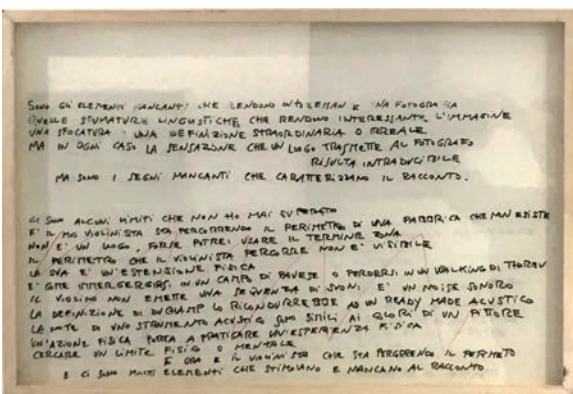 SONO GLI ELEMENTI MANCANTI CHE RENDONO UNA FOTOGRAFIA
QUELLE STUMATURE LINGUISTICHE CHE RENDONO INTERESSANTE L'IMMAGINE
UNA SFOCATURA UNA DEFINIZIONE STRAORDINARIA O IRREALE
MA IN OGNI CASO LA SENSAZIONE CHE UN LUOGO TRASMETTE AL FOTOGRAFO
RISULTA INTRADUCIBILE
MA SONO I SEGNI MANCANTI CHE CARATTERIZZANO IL RACCONTO.
CI SONO ALCUNI LIMITI CHE NON HO MAI SUPERATO
E' IL MIO VIOLINISTA STA PERCORRENDO IL PERIMETRO DI UNA FABBRICA CHE NON ESISTE
NON E' UN LUOGO, FORSE POTREI USARE IL TERMINE ZONA
IL PERIMETRO CHE IL VIOLINISTA PERCORRE NON E' VISIBILE
LA SUA E' UN'ESTENSIONE FISICA
E' COME IMMERGERSI IN UN CAMPO DI PAVESE O PERDERSI IN UN WALKING DI THOREAU
IL VIOLINO NON EMETTE UNA SEQUENZA DI SUONI E' UN NOISE SONORO
LA DEFINIZIONE DI DUCHAMP LO RICONDURREBBE AD UN READY MADE ACUSTICO
LE NOTE DI UNO STRUMENTO ACUSTICO SONO SIMILI AI COLORI DI UN PITTORE
UN'AZIONE FISICA PORTA A PRATICARE UN'ESPERIENZA FISICA
CERCARE UN LIMITE FISICO O MENTALE
E ORA E IL VIOLINISTA CHE STA PERCORRENDO IL PERIMETRO
E CI SONO MOLTI ELEMENTI CHE STIMOLANO E MANCANO AL RACCONTO